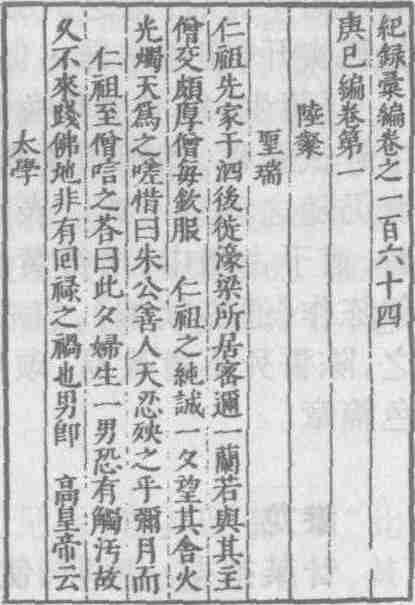 紀録彙編卷之一百六十四
庚巳編卷第一
陸粲
聖瑞
仁祖先家于泗後徙濠梁所居宻邇一蘭若與其主
僧交頗厚僧毎欽服　仁祖之純誠一夕望其舍火
光燭天爲之嗟惜曰朱公善人天忍殃之乎彌月而
仁祖至僧唁之荅曰此夕婦生一男恐有觸汚故
久不來踐佛地非有回禄之禍也男卽　高皇帝云
太學